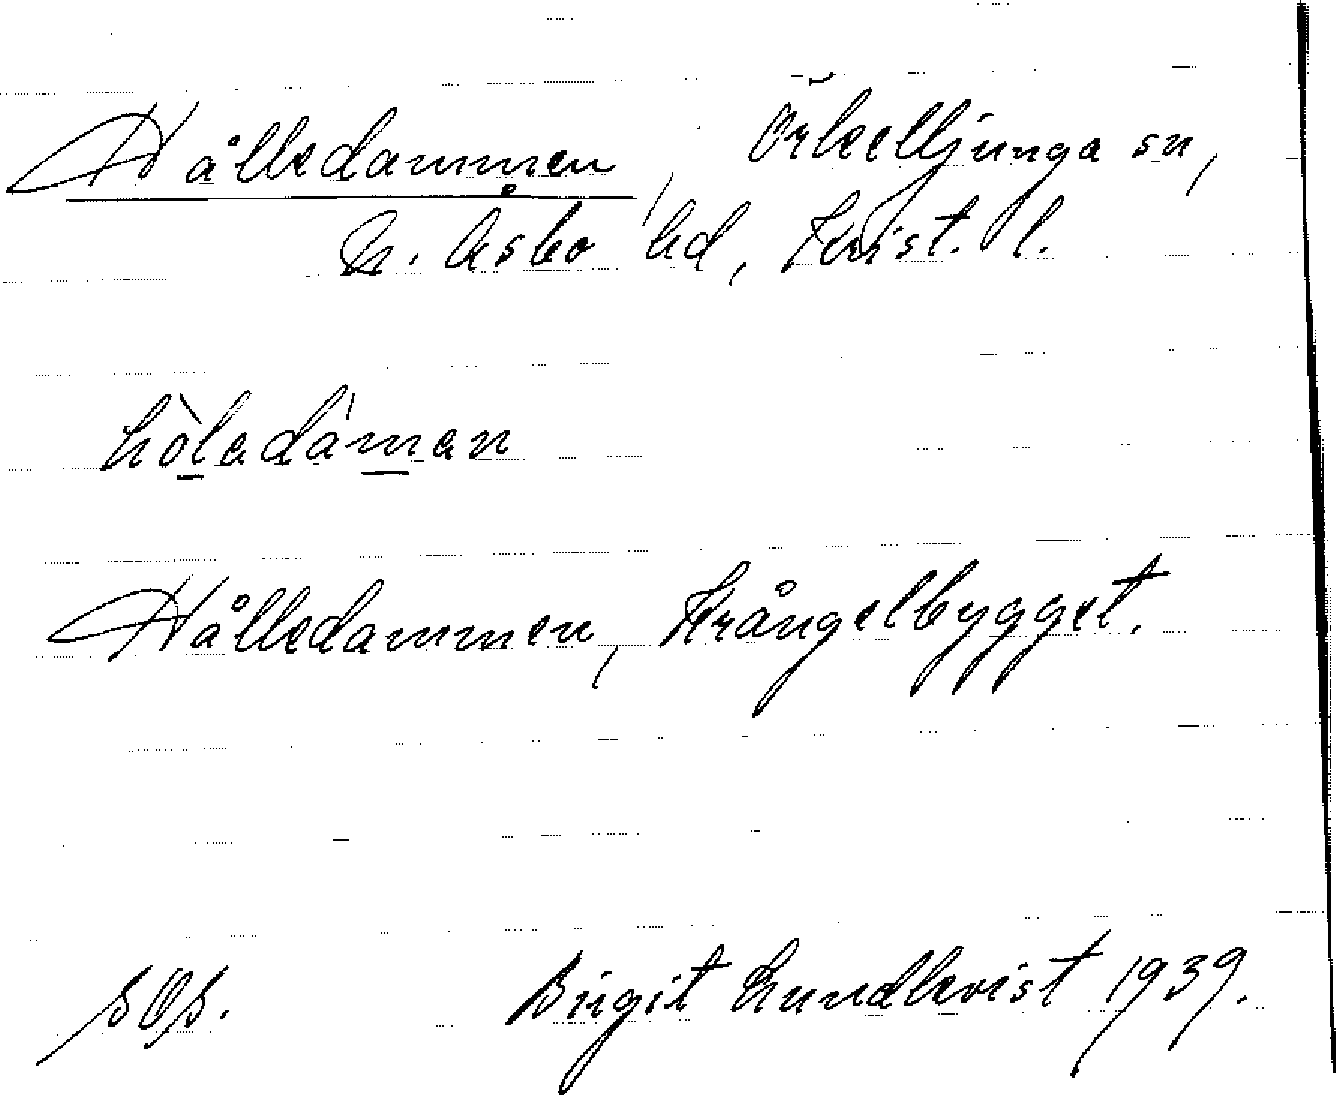 Hålledammen, Örkelljunga sn,
N. Åsbo hd, Krist. l.
hòlədámən
Hålledammen, Krångelbygget.
Birgit Lundkvist 1939.